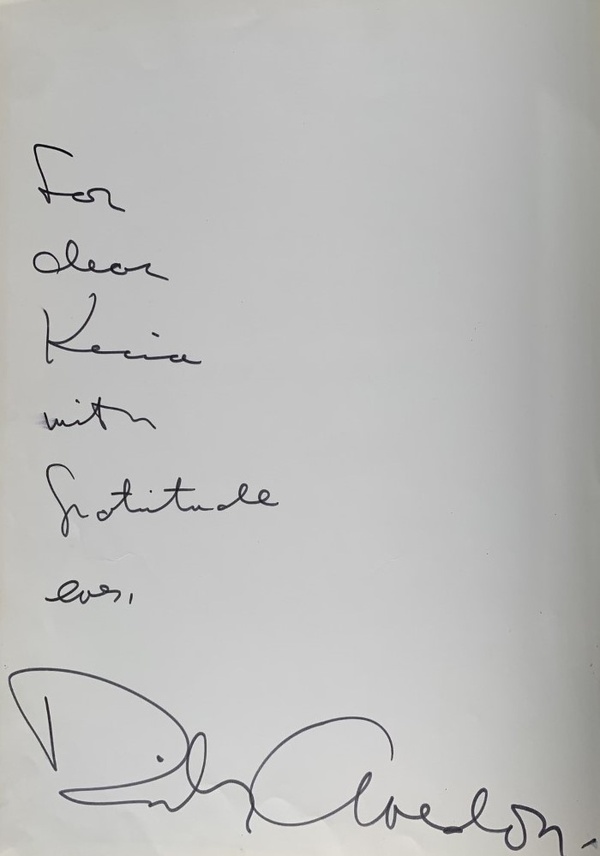 For
dear
Kecia
with
gratitude
ever,
Dick Avedon.